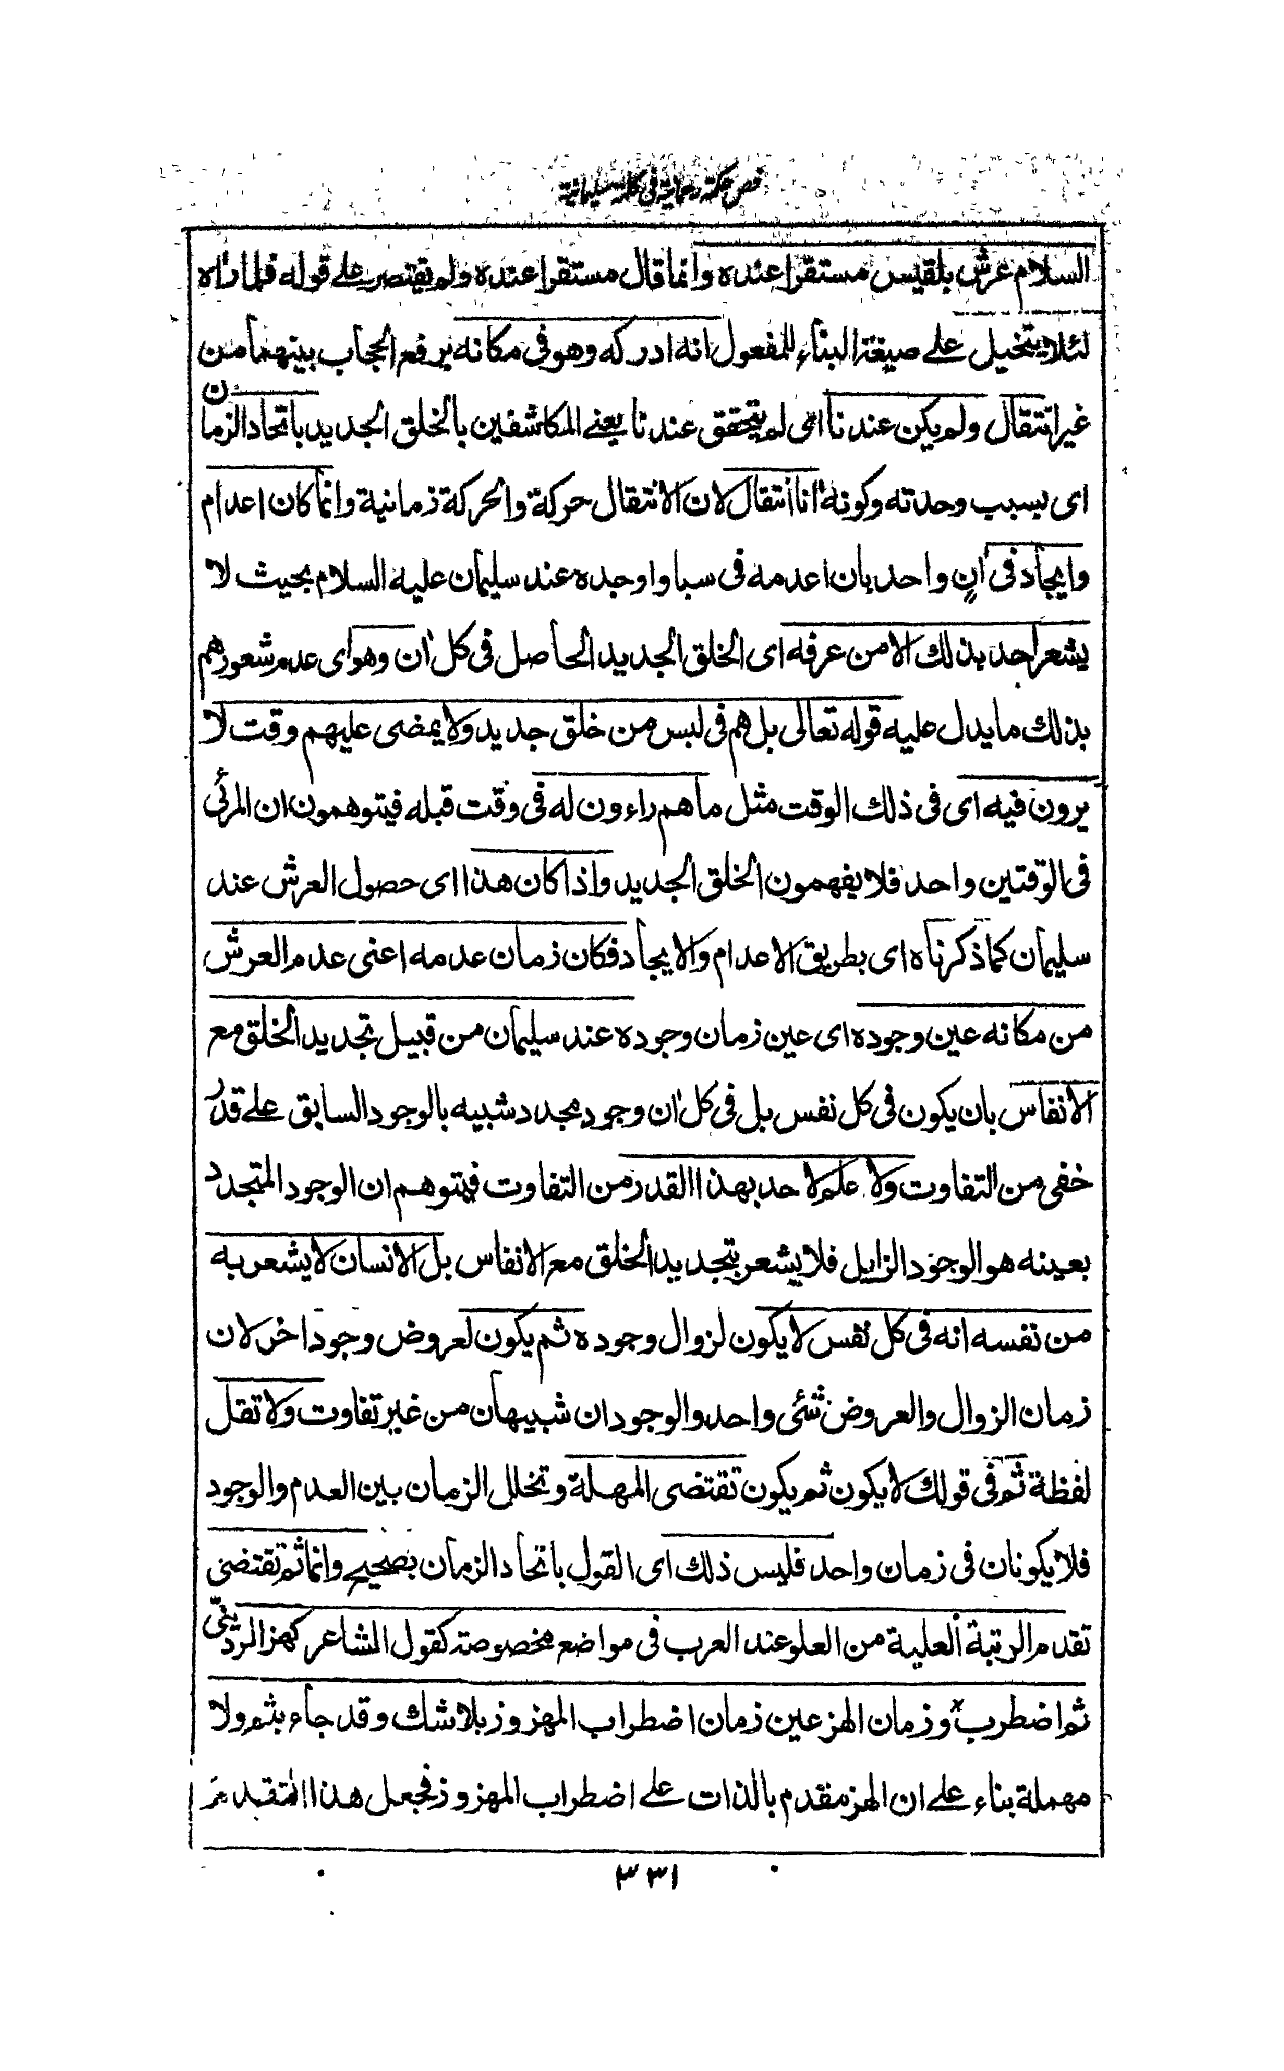 فص حكمة رحمانية في كلمة سليمانية
السلام عرش بلقيس مستقرا عنده وانما قال مستقرا عنده ولم يقتصر على قوله فلما رآه
لئلا يتخيل على صيغة البناء للمفعول انه ادركه وهو فى مكانه يرفع الحجاب بينهما من
غير انتقال ولم يكن عندنا اى لم يتحقق عندنا يعنى المكاشفين بالخلق الجديد باتحاد الزمان
اى بسبب وحدته وكونه آنا انتقال لان الانتقال حركة والحركة زمانية وانما كان اعدام
وايجاد فى آن واحد بان اعدمه فى سبا واوجده عند سليمان عليه السلام بحيث لا
يشعر احد بذلك الا من عرفه اى الخلق الجديد الحاصل فى كل آن وهو اى عدم شعورهم
بذلك ما يدل عليه قوله تعالى بل هم فى لبس من خلق جديد ولا يمضى عليهم وقت لا
يرون فيه اى فى ذلك الوقت مثل ما هم راءون له فى وقت قبله فيتوهمون ان المرئى
فى الوقتين واحد فلا يفهمون الخلق الجديد واذا كان هذا اى حصول العرش عند
سليمان كما ذكرناه اى بطريق الاعدام والايجاد فكان زمان عدمه اعنى عدم العرش
من مكانه عين وجوده اى عين زمان وجوده عند سليمان من قبيل تجديد الخلق مع
الانفاس بان يكون فى كل نفس بل فى كل آن وجود مجدد شبيه بالوجود السابق على قدر
خفى من التفاوت ولا علم لاحد بهذا القدر من التفاوت فيتوهم ان الوجود المتجدد
بعينه هو الوجود الزايل فلا يشعر بتجديد الخلق مع الانفاس بل الانسان لا يشعر به
من نفسه انه فى كل نفس لا يكون لزوال وجوده ثم يكون لعروض وجود اخر لان
زمان الزوال والعروض شئى واحد والوجودان شبيهان من غير تفاوت ولا تقل
لفظة ثم فى قولك لا يكون ثم يكون تقتضى المهلة وتخلل الزمان بين العدم والوجود
فلا يكونان فى زمان واحد فليس ذلك اى القول باتحاد الزمان بصحيح وانما ثم تقتضى
تقدم الرتبة العلية من العلو عند العرب فى مواضع مخصوصة كقول الشاعر كهز الردينى
ثم اضطرب و زمان الهز عين زمان اضطراب المهزوز بلا شك وقد جاء بثم ولا
مهملة بناء على ان الهز مقدم بالذات على اضطراب المهزوز فجعل هذا المتقدم
٣٣١